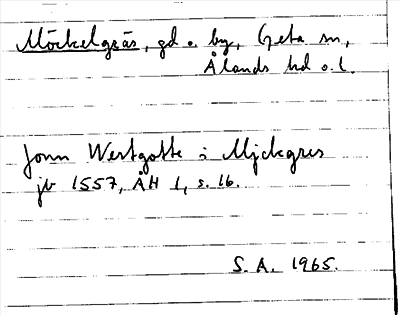 Möckelgräs, gd o. by, Geta sn,
Ålands hd o. l.
Jonn Westgotte i Mickgres
jb 1557, ÅH 1, s. 16.
S. A. 1965.